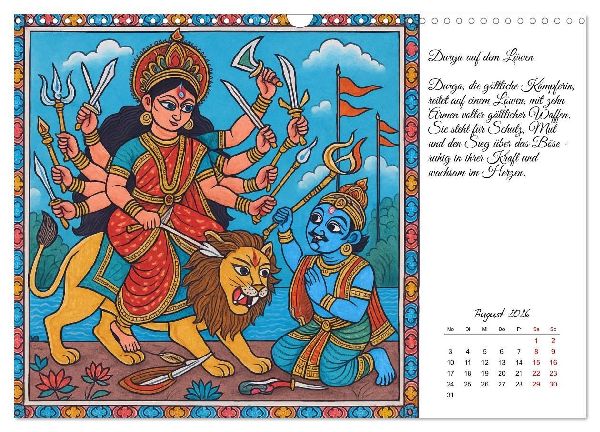 Durga auf dem Löwen
Durga, die göttliche Kämpferin,
reitet auf einem Löwen, mit zehn
Armen voller göttlicher Waffen.
Sie steht für Schutz, Mut
und den Sieg über das Böse -
ruhig in ihrer Kraft und
wachsam im Herzen.
August 2026
Mo Di Mi Do Fr Sa So
1 2
3 4 5 6 7 8 9
10 11 12 13 14 15 16
17 18 19 20 21 22 23
24 25 26 27 28 29 30
31